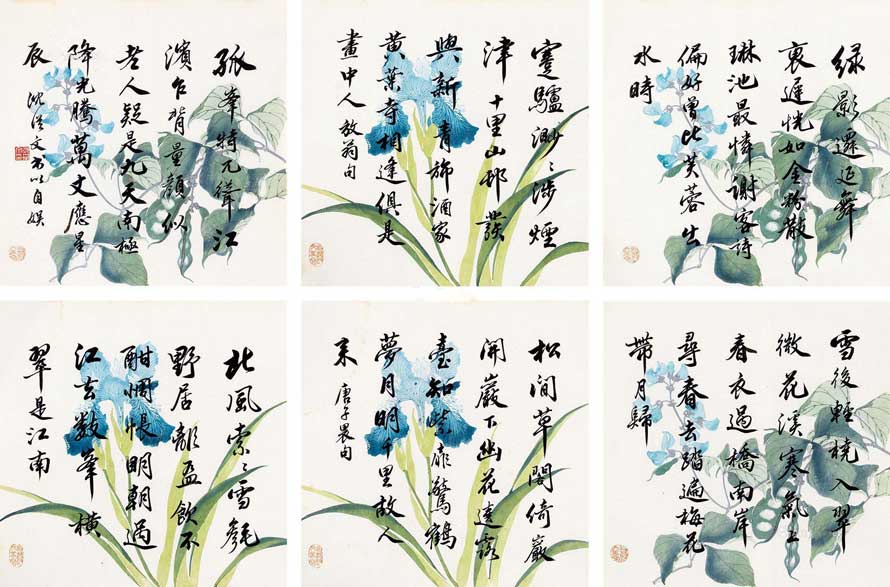 綠影遷延舞
裏遲恍如金粉散
琳池最憐謝客詩
偏好曾比芙蓉出
水時
蹇驢渺〻涉煙
津十里山邨發
興新青旆酒家
黃葉寺相逢俱是
畫中人放翁句
孤峯特兀聳江
濱乍背量顏似
老人疑是九天南極
降光騰萬丈應星
辰 沈從文書以自娛
雪後輕橈入翠
微花溪寒氣上
春衣過橋南岸
尋春去踏遍梅花
帶月歸
松間草閣倚巖
開巖下幽花遶露
臺扉驚鶴
夢月明千里故人
來 唐子畏句
北風索〻雪毿
野居離盃飲不
酣惆悵明朝過
江去數峯橫
翠是江南